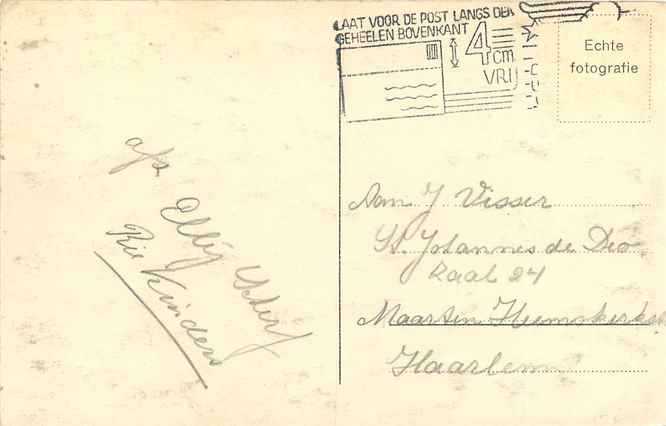 LAAT VOOR DE POST LANGS DEN
GEHEELEN BOVENKANT
4 cm
VRIJ
Echte
fotografie
afz
Elly
Rie Kinders
Aan J Visser
St. Johannes de Deo
Zaal 24
Maarten Heemskerk
Haarlem